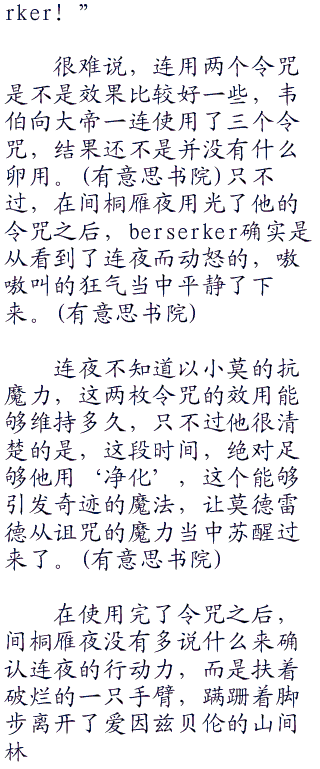 rker！”
很难说，连用两个令咒
是不是效果比较好一些，韦
伯向大帝一连使用了三个令
咒，结果还不是并没有什么
卵用。(有意思书院)只不
过，在间桐雁夜用光了他的
令咒之后，berserker确实是
从看到了连夜而动怒的，嗷
嗷叫的狂气当中平静了下
来。(有意思书院)
连夜不知道以小莫的抗
魔力，这两枚令咒的效用能
够维持多久，只不过他很清
楚的是，这段时间，绝对足
够他用‘净化’，这个能够
引发奇迹的魔法，让莫德雷
德从诅咒的魔力当中苏醒过
来了。(有意思书院)
在使用完了令咒之后，
间桐雁夜没有多说什么来确
认连夜的行动力，而是扶着
破烂的一只手臂，蹒跚着脚
步离开了爱因兹贝伦的山间
林